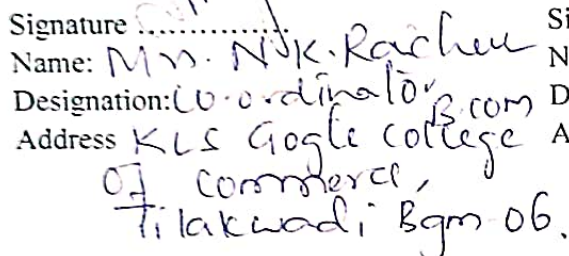 Signature ..............
Name: Mr. N.K. Rachen
Designation: Co-ordinator B.com
Address KLS Gogte College
Of Commerce,
Tilakwadi Bgm-06.
Si
N
D
A